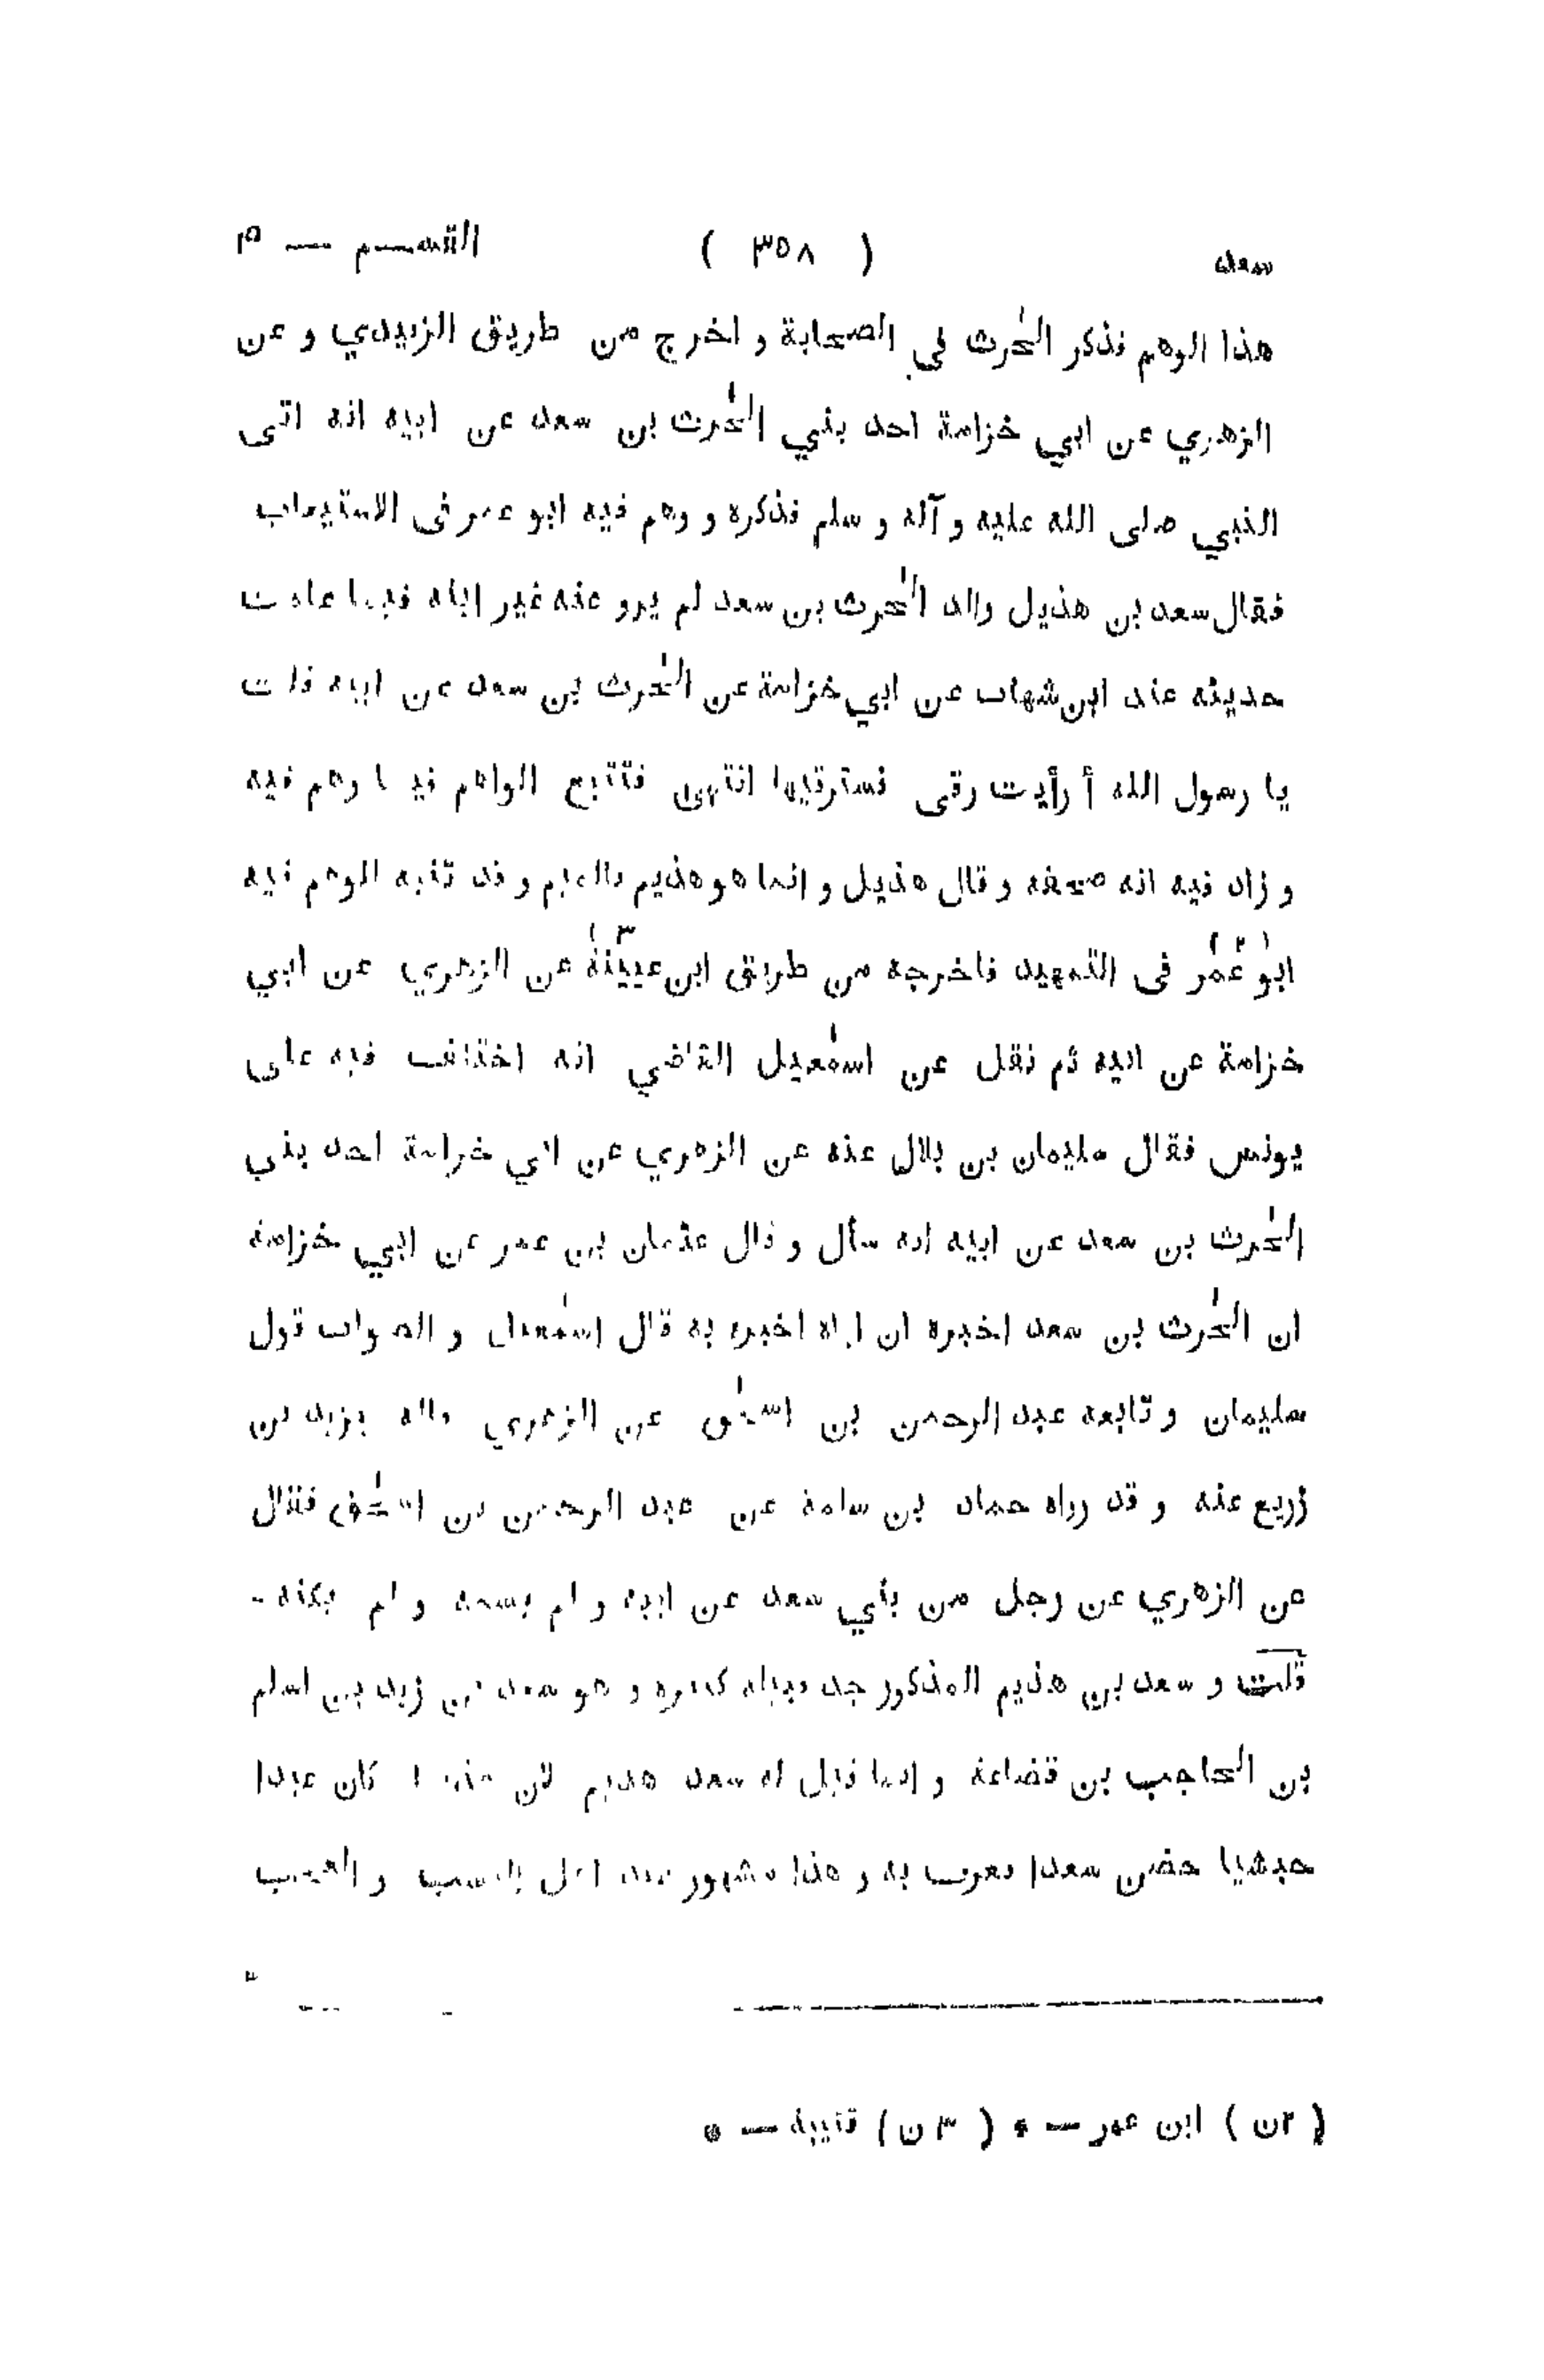 سعد ( ٣٥٨ ) القسم — ٣
هذا الوهم فذكر الحٰرث في الصحابة و اخرج من طريق الزبيدي و عن
الزهري عن ابي خزامة احد بني الحٰرث بن سعد عن ابيه انه اتى
النبي صلى الله عليه و آله و سلم فذكره و وهم فيه ابو عمر فى الاستيعاب
فقال سعد بن هذيل والد الحٰرث بن سعد لم يرو عنه غير ابنه فيما علمت
حديثه عند ابن شهاب عن ابي خزامة عن الحٰرث بن سعد عن ابيه قلت
يا رسول الله أ رأيت رقى نسترقيها انتهى فتتبع الواهم فيما وهم فيه
و زاد فيه انه صحفه و قال هذيل و انما هو هذيم بالميم و قد تنبه الوهم فيه
ابو عمر (٢) فى التمهيد فاخرجه من طريق ابن عيينة (٣) عن الزهري عن ابي
خزامة عن ابيه ثم نقل عن اسمٰعيل القاضي انه اختلف فيه على
يونس فقال سليمان بن بلال عنه عن الزهري عن ابي خزامة احد بني
الحٰرث بن سعد عن ابيه انه سأل و قال عثمان بن عمر عن ابي خزامة
ان الحٰرث بن سعد اخبره ان اباه اخبره به قال اسمٰعيل و الصواب قول
سليمان و تابعه عبد الرحمن بن اسحٰق عن الزهري قاله يزيد بن
زريع عنه و قد رواه حماد بن سلمة عن عبد الرحمن بن اسحٰق فقال
عن الزهري عن رجل من بني سعد عن ابيه و لم يسمه و لم يكنه -
قلت و سعد بن هذيم المذكور جد قبيلة كبيرة و هو سعد بن زيد بن اسلم
بن الحاجب بن قضاعة و انما قيل له سعد هذيم لان هذيما كان عبدا
حبشيا حضن سعدا فعرف به و هذا مشهور عند اهل النسب و العجب
( ٢ن ) ابن عمر — * ( ٣ ن ) قتيبة — *